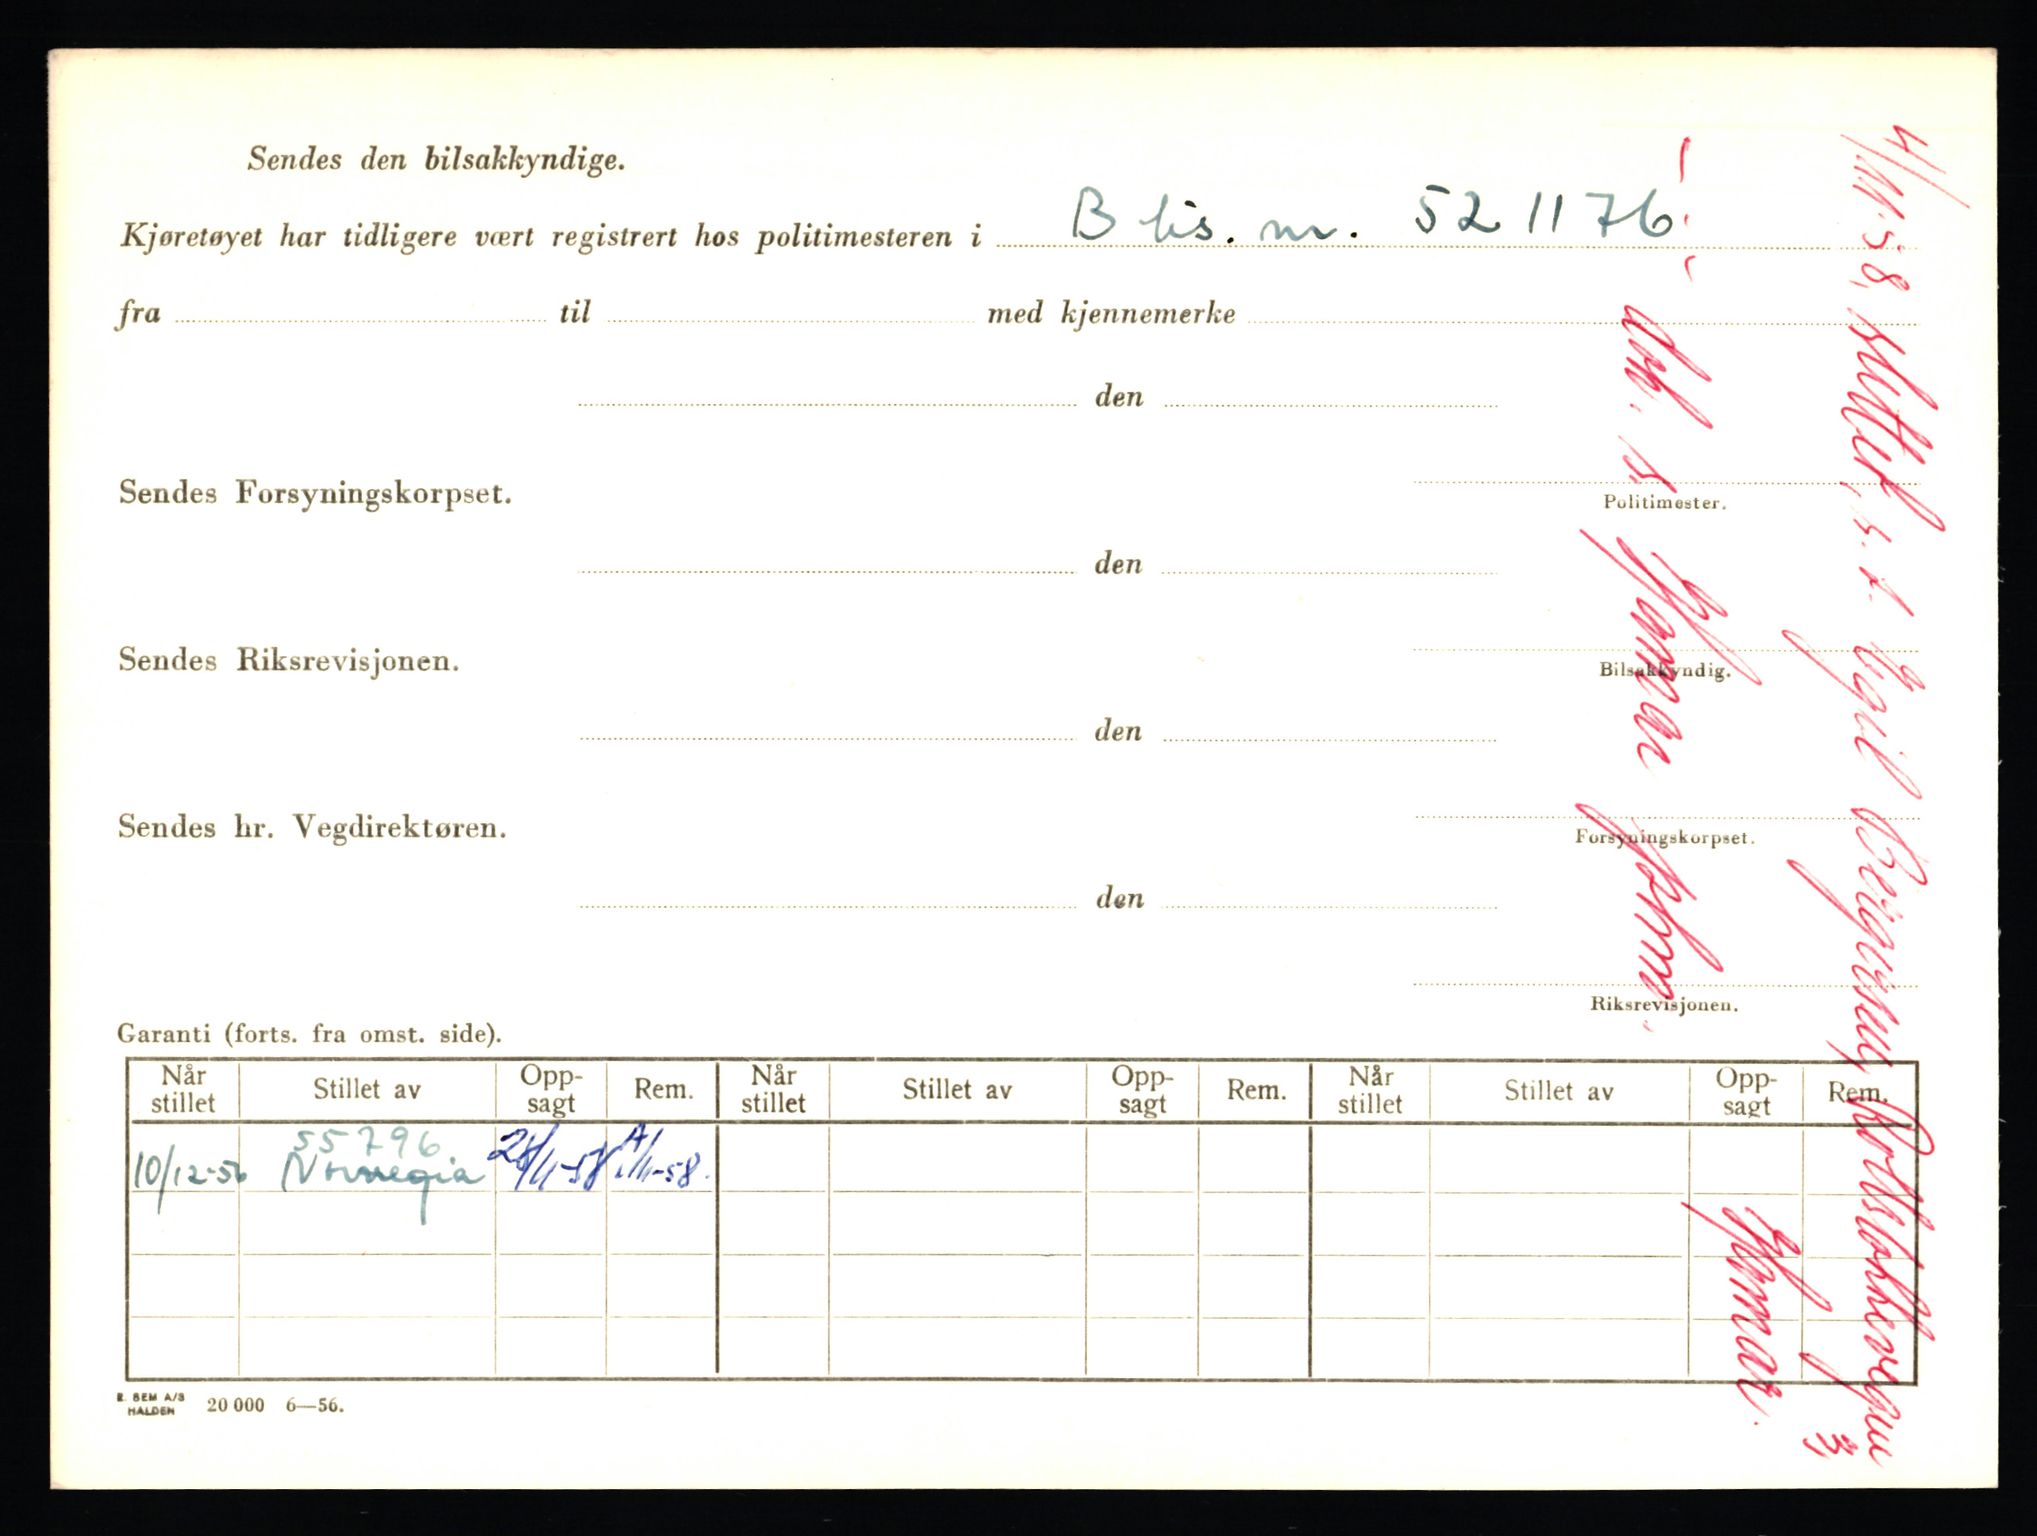 Sendes den bilsakkyndige.
Kjøretøyet har tidligere vært registrert hos politimesteren i B lis. nr. 52 11 76
fra til med kjennemerke
den
Politimester.
Sendes Forsyningskorpset.
den
Bilsakkyndig.
Sendes Riksrevisjonen.
den
Forsyningskorpset.
Sendes hr. Vegdirektøren.
den
Riksrevisjonen.
Garanti (forts. fra omst. side).
Når stillet Stillet av Opp-sagt Rem. Når stillet Stillet av Opp-sagt Rem. Når stillet Stillet av Opp-sagt Rem.
55796
10/12-56 Norvegia /11-58 /11-58.
R. SEM A/S
HALDEN 20 000 6—56.
4/11-58, Egil